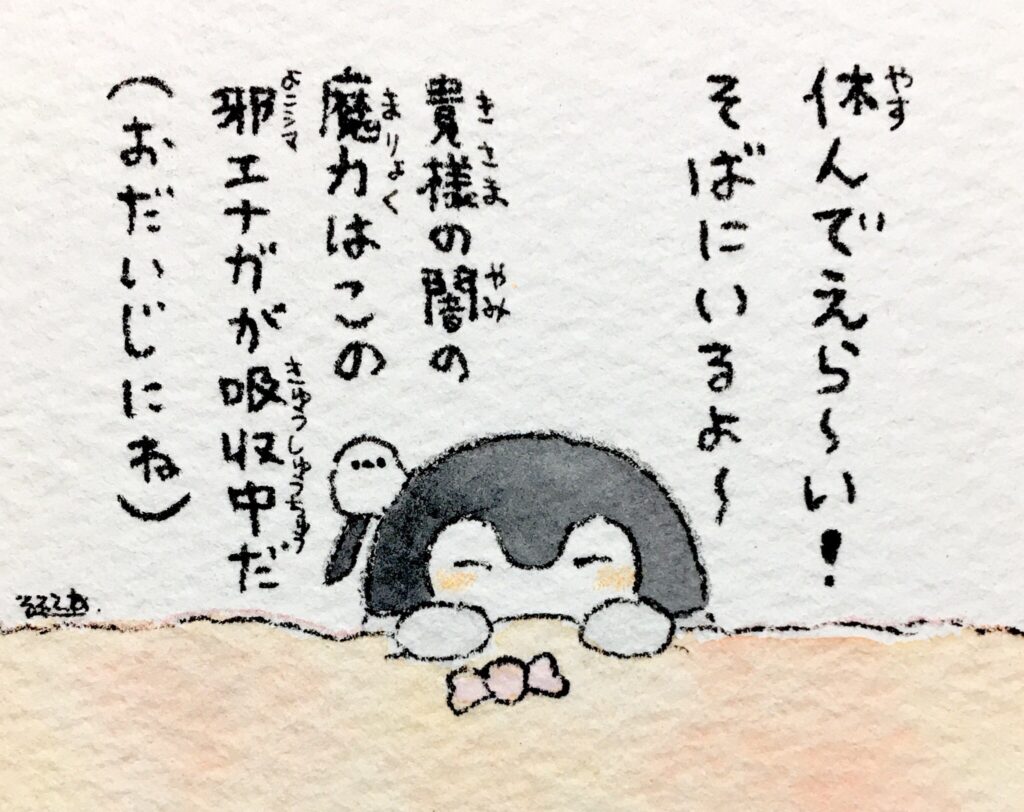 休んでえら〜い！
そばにいるよ〜
貴様の闇の
魔力はこの
邪エナガが吸収中だ
（おだいじにね）
やす
きさま
やみ
まりょく
よこシマ
きゅうしゅうちゅう